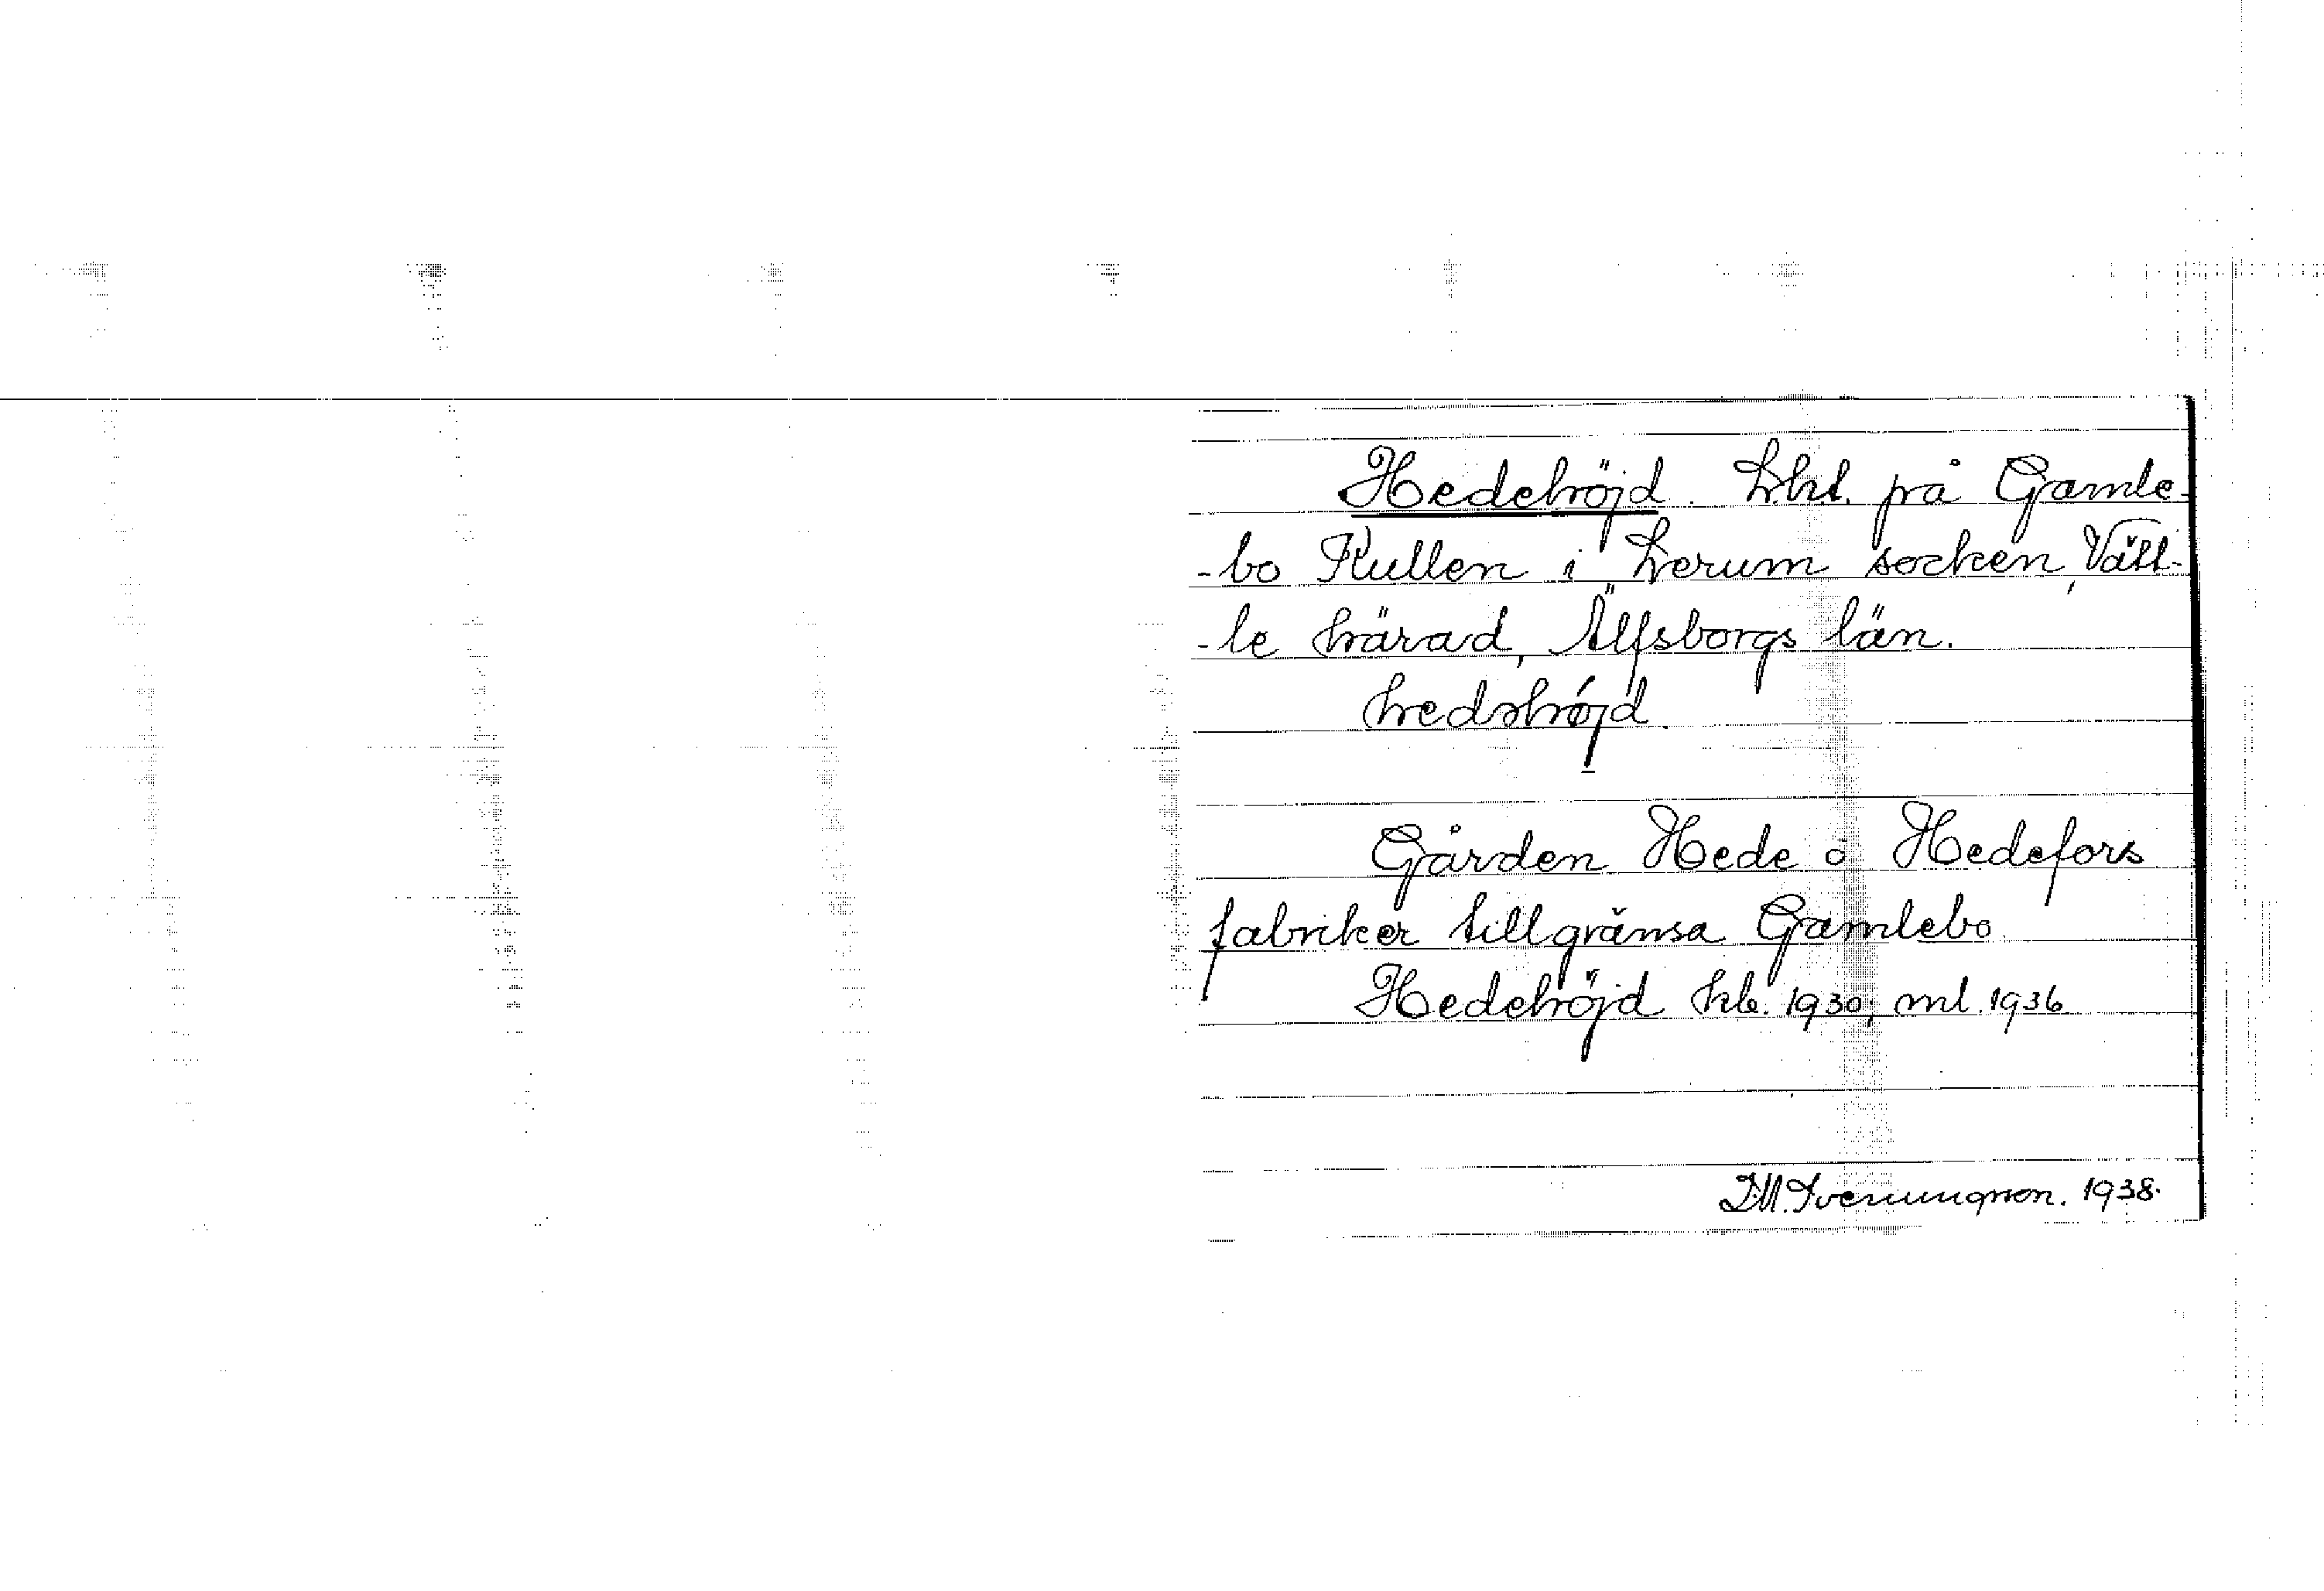 Hedehöjd. Lht. på Gamle-
-bo Kullen i Lerum socken, Vätt-
-le härad, Älfsborgs län.
hedshöjd.
Gården Hede o Hedefors
fabriker tillgränsa Gamlebo.
Hedehöjd hfb. 1930; ml. 1936
1938.